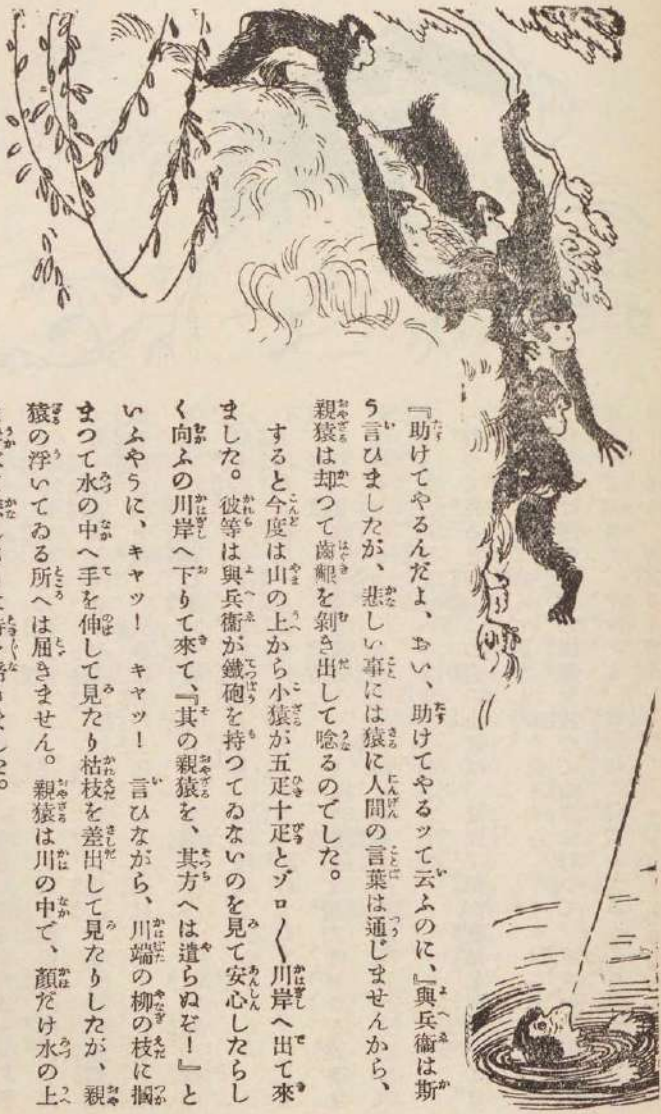 『助けてやるんだよ、おい、助けてやるッて云ふのに、』與兵衞は斯
う言ひましたが、悲しい事には猿に人間の言葉は通じませんから、
親猿は却つて齒齦を剝き出して唸るのでした。
すると今度は山の上から小猿が五疋十疋とゾロ〳〵川岸へ出て來
ました。彼等は與兵衞が鐵砲を持つてゐないのを見て安心したらし
く向ふの川岸へ下りて來て、『其の親猿を、其方へは遣らぬぞ！』と
いふやうに、キャッ！　キャッ！　言ひながら、川端の柳の枝に摑
まつて水の中へ手を伸して見たり枯枝を差出して見たりしたが、親
猿の浮いてゐる所へは屆きません。親猿は川の中で、顏だけ水の上